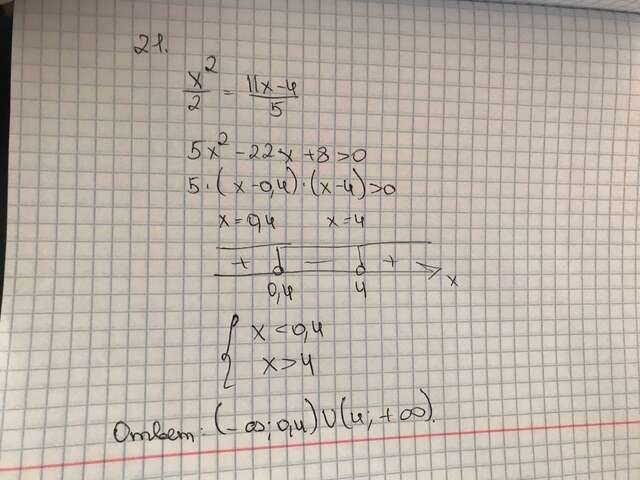 21.
x²/2 = 11x-4/5
5x² - 22x + 8 > 0
5·(x-0,4)·(x-4)>0
x=0,4 x=4
+ — + x
0,4 4
{ x < 0,4
x > 4
Ответ: (-∞; 0,4)∪(4; +∞).